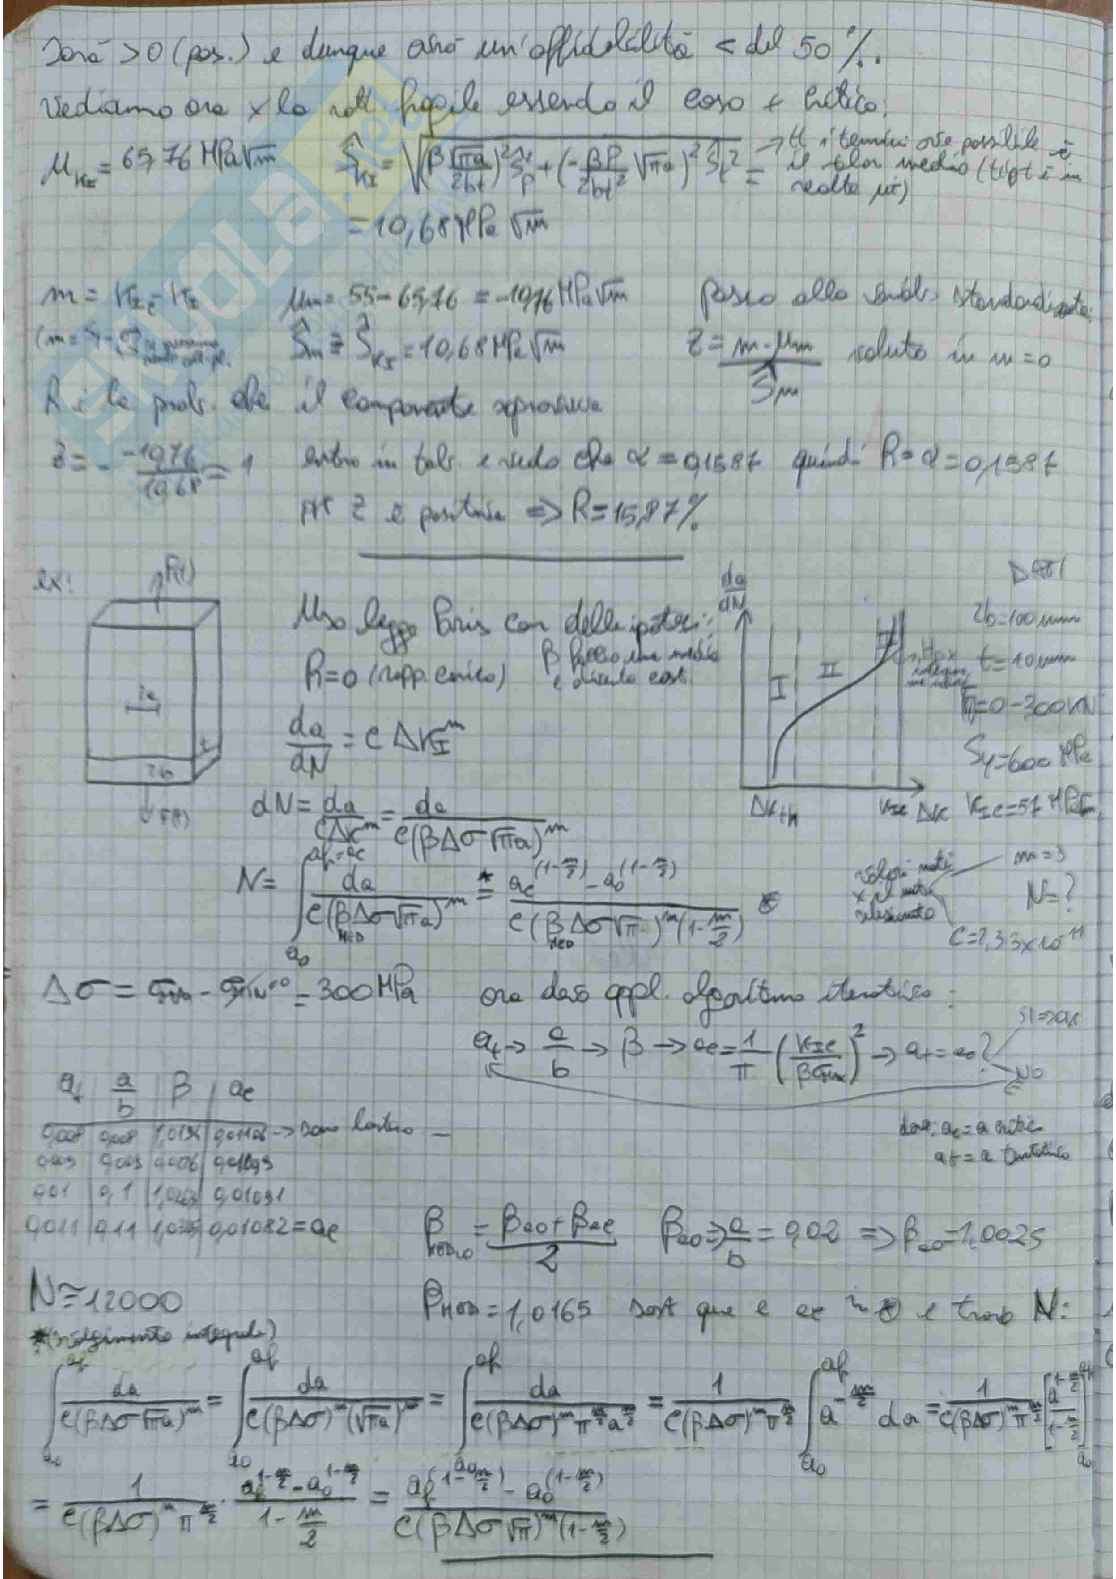 Sarà >0 (pos.) e dunque avrò un'affidabilità < del 50%.
Vediamo ora x la rott fragile essendo il caso + critico:
μ_KI = 65,76 MPa√m   Ŝ_KI = √((β√πa/2bt)² Ŝ_P² + (-βP/2bt² √πa)² Ŝ_t²) = → tt i termini ove possibile è
il valor medio (t è in realtà μt)
= 10,68 MPa√m
m = K_Ic - K_I   μm = 55-65,76 = -10,76 MPa√m   passo alla variab. standardizzata:
Ŝm ≡ Ŝ_KI = 10,68 MPa√m   Z = (m-μm)/Ŝm valuto in m=0
R è la prob. che il componente sopravviva
Z = - (-10,76)/10,68 = 1   entro in tab. e vedo che α = 0,1587 quindi R = α = 0,1587
pk Z è positiva ⇒ R = 15,87%
ex:
F(t)
2a
t
2b
F(t)
Uso legge Paris con delle ipotesi:
R=0 (rapp. carico)   β preso una media
da/dN = C ΔK_I^m
da/dN
I
II
ΔK_th
K_Ic ΔK
DATI
2b=100 mm
t=10 mm
F=0-300 kN
Sy=600 MPa
K_Ic=57 MPa√m
m=3
N=?
C=2,33x10^-11
dN = da/(CΔK^m) = da/(C(βΔσ√πa)^m)
N = ∫_{a0}^{af=ac} da/(C(β_MED Δσ√πa)^m) =* (ac^(1-m/2) - a0^(1-m/2))/(C(β_MED Δσ√π)^m (1-m/2))
Δσ = σ_MAX - σ_MIN^=0 = 300 MPa   ora devo appl. algoritmo iterativo:
at → a/b → β → ac = 1/π (K_Ic/βσ_MAX)² → at = ac?
SI ⇒ ac
NO
dove: ac = a critico
at = a tentativo
at | a/b | β | ac
0,008 | 0,08 | | 0,01106 →
0,01 | 0,1 | | 0,01091
0,011 | 0,11 | | 0,01082 = ac
β_MEDIO = (β_a0 + β_ac)/2   β_a0 ⇒ a/b = 0,02 ⇒ β_a0 = 1,0025
N ≅ 12000   β_MED = 1,0165 sost que e ac in ⊛ e trovo N:
*(svolgimento integrale)
∫_{a0}^{af} da/(C(βΔσ√πa)^m) = ∫_{a0}^{af} da/(C(βΔσ)^m(√πa)^m) = ∫_{a0}^{af} da/(C(βΔσ)^m π^{m/2} a^{m/2}) = 1/(C(βΔσ)^m π^{m/2}) ∫_{a0}^{af} a^{-m/2} da = 1/(C(βΔσ)^m π^{m/2}) [a^{1-m/2}/(1-m/2)]_{a0}^{af}
= 1/(C(βΔσ)^m π^{m/2}) · (af^{1-m/2} - a0^{1-m/2})/(1-m/2) = (af^{(1-m/2)} - a0^{(1-m/2)})/(C(βΔσ√π)^m(1-m/2))